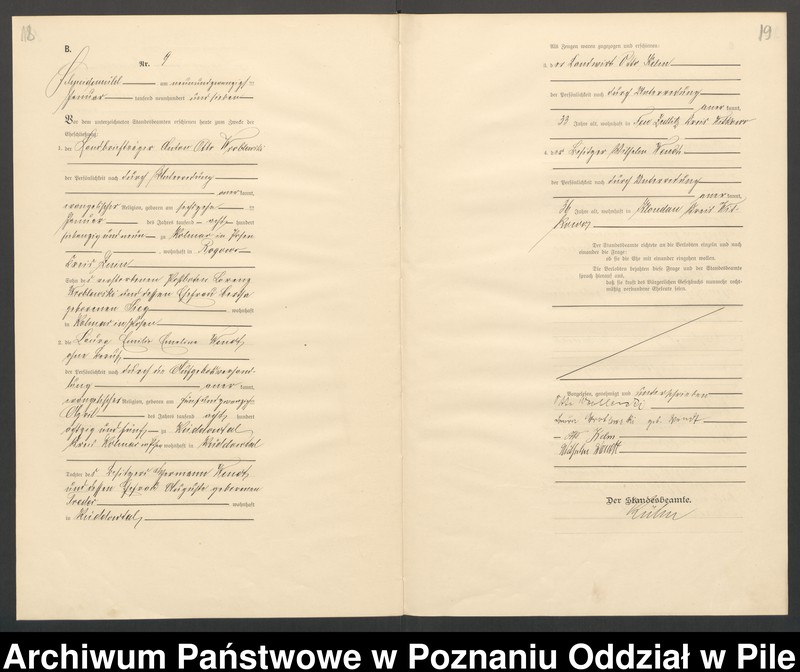 18
B.
Nr. 9
am neunundzwanzigsten
Januar tausend neunhundert und sieben
Vor dem unterzeichneten Standesbeamten erschienen heute zum Zwecke der
Eheschließung:
1. der Landbriefträger Anton Otto Wroblewski
der Persönlichkeit nach durch Unterredung
anerkannt,
evangelischer Religion, geboren am
Januar des Jahres tausend acht hundert
siebenzig und neun zu Kolmar in Posen
, wohnhaft in Rogowo
Kreis Znin
Sohn des verstorbenen Postboten Lorenz
Wroblewski und dessen Ehefrau Bertha
geborenen Sieg
wohnhaft
in Kolmar in Posen
2. die Laura Emilie Emeline Wendt,
ohne Beruf,
der Persönlichkeit nach durch die Aufgebotsverhand-
lung anerkannt,
evangelischer Religion, geboren am fünfundzwanzigsten
April des Jahres tausend acht hundert
achtzig und fünf zu Küddowtal
Kreis Kolmar in Posen wohnhaft in Küddowtal
Tochter des Besitzers Hermann Wendt
und dessen Ehefrau Auguste geborenen
wohnhaft
in Küddowtal
19
Als Zeugen waren zugezogen und erschienen:
3. der Landwirt Otto Kelm
der Persönlichkeit nach durch Unterredung
anerkannt,
33 Jahre alt, wohnhaft in Neu Zedlitz Kreis Witkowo
4. der Besitzer Wilhelm Wendt
der Persönlichkeit nach durch Unterredung
anerkannt,
36 Jahre alt, wohnhaft in Kreis Wit-
kowo
Der Standesbeamte richtete an die Verlobten einzeln und nach
einander die Frage:
ob sie die Ehe mit einander eingehen wollen.
Die Verlobten bejahten diese Frage und der Standesbeamte
sprach hierauf aus,
daß sie kraft des Bürgerlichen Gesetzbuchs nunmehr recht-
mäßig verbundene Eheleute seien.
Vorgelesen, genehmigt und unterschrieben
Otto
Laura geb. Wendt
Otto Kelm
Wilhelm Wendt
Der Standesbeamte.
Kühn
Archiwum Państwowe w Poznaniu Oddział w Pile